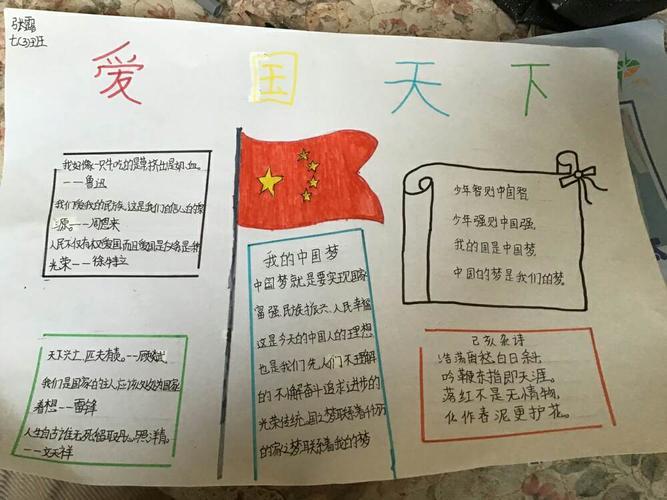 张露
七(3)班
爱国天下
我好像一只牛吃的是草挤出是奶、血。
——鲁迅
我们爱我的民族,这是我们的信心的
源。——周恩来
人民不仅有权爱国而且爱国是
光荣——徐特立
天下兴亡、匹夫有责。——顾炎武
我们是国家的主人,应该处处为国家
着想——雷锋
人生自古谁无死留取丹。照汗精。
——文天祥
我的中国梦
中国梦就是要实现国家
富强、民族振兴、人民幸福
这是今天的中国人的理想
也是我们先人们不理解
的不懈奋斗追求进步的
光荣传统。国之梦联系着千万
的家之梦联系着我的梦
少年智则中国智
少年强则中国强
我的国是中国梦
中国的梦是我们的梦。
己亥杂诗
浩荡离愁白日斜
吟鞭东指即天涯。
落红不是无情物
化作春泥更护花。